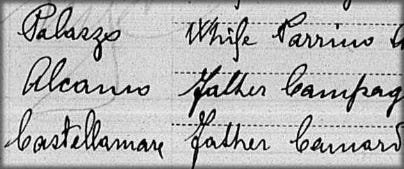 Palazzo Whife Parrino
Alcamo Father Campag
Castellamare Father Camard